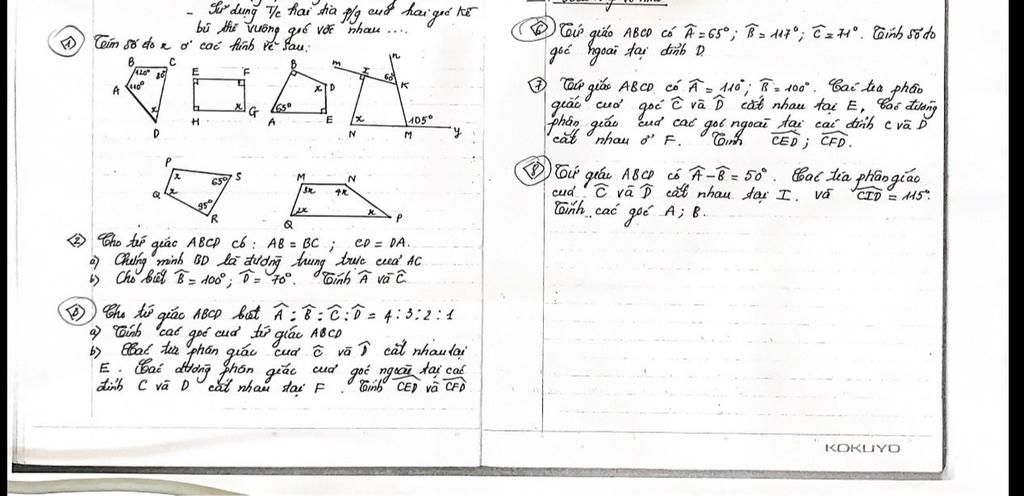 - Sử dụng T/c hai tia p/g cuả hai góc kề
bù thì vuông góc với nhau ....
1 Tìm số đo x ở các hình vẽ sau:
B C
120° 80°
A 110°
x
D
E F
x
H G
B
x D
65°
A E
n
m I 60° K
x 105°
N M y
P
x 65° S
Q x
95°
R
M N
3x 4x
2x x
Q P
2 Cho tứ giác ABCD có: AB = BC ; CD = DA.
a) Chứng minh BD là đường trung trực cuả AC
b) Cho biết B̂ = 100°; D̂ = 70°. Tính Â và Ĉ.
3 Cho tứ giác ABCD biết Â : B̂ : Ĉ : D̂ = 4 : 3 : 2 : 1
a) Tính các góc cuả tứ giác ABCD
b) Các tia phân giác cuả Ĉ và D̂ cắt nhau tại
E. Các đường phân giác cuả góc ngoài tại các
đỉnh C và D cắt nhau tại F. Tính CED và CFD
6 Tứ giác ABCD có Â = 65°; B̂ = 117°; Ĉ = 71°. Tính số đo
góc ngoài tại đỉnh D.
7 Tứ giác ABCD có Â = 110°; B̂ = 100°. Các tia phân
giác cuả góc Ĉ và D̂ cắt nhau tại E, Các đường
phân giác cuả các góc ngoài tại các đỉnh C và D
cắt nhau ở F. Tính CED; CFD.
8 Tứ giác ABCD có Â - B̂ = 50°. Các tia phân giác
cuả Ĉ và D̂ cắt nhau tại I. và CID = 115°.
Tính các góc A; B.
KOKUYO